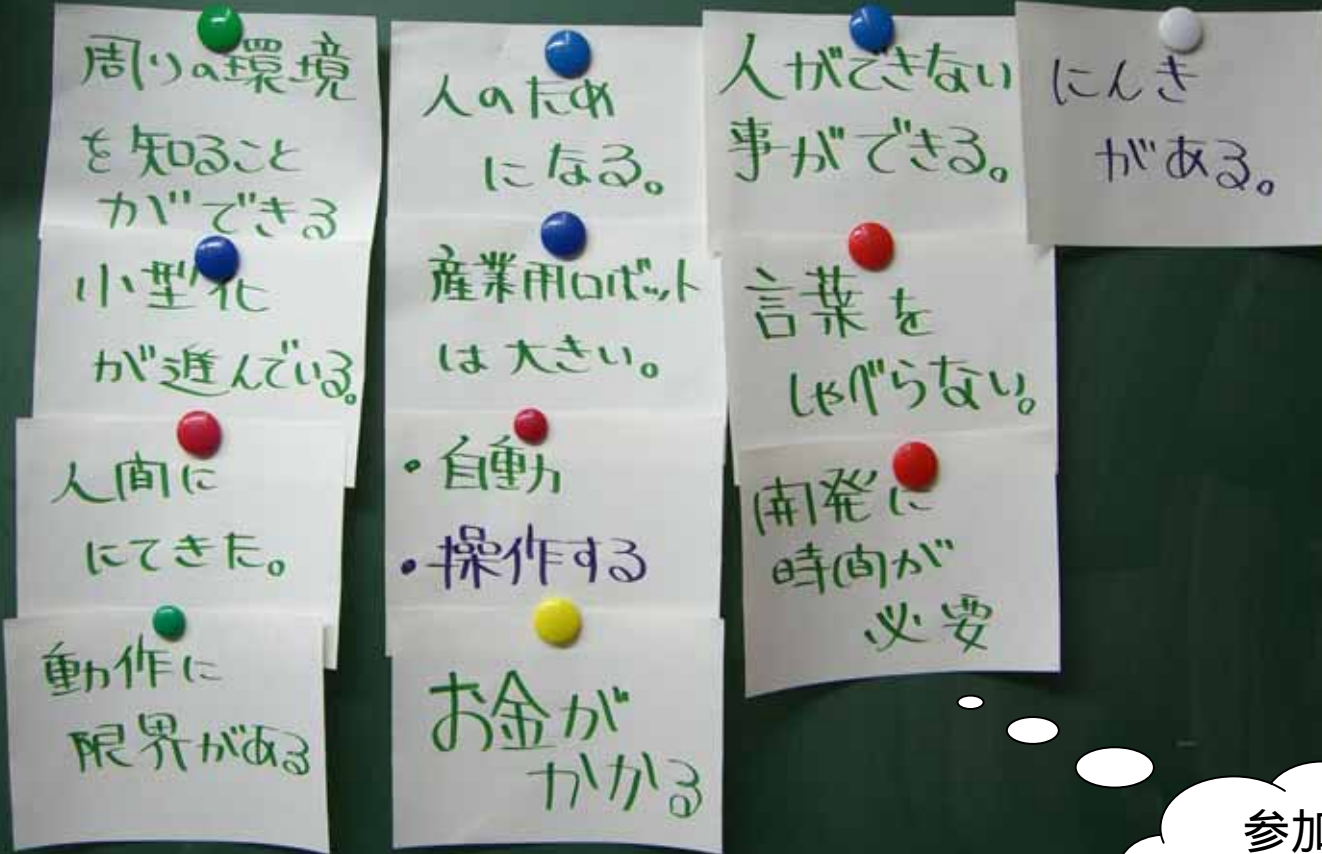 周りの環境
を知ること
ができる
小型化
が進んでいる。
人間に
にてきた。
動作に
限界がある
人のため
になる。
産業用ロボット
は大きい。
・自動
・操作する
お金が
かかる
人ができない
事ができる。
言葉を
しゃべらない。
開発に
時間が
必要
にんき
がある。
参加